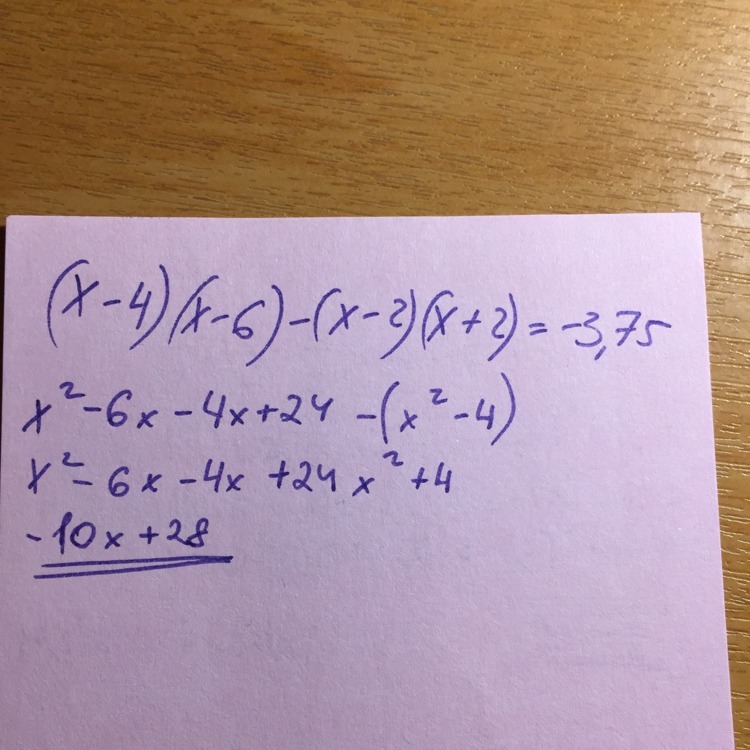 (x-4)(x-6)-(x-2)(x+2)=-3,75
x²-6x-4x+24-(x²-4)
x²-6x-4x+24x²+4
-10x+28